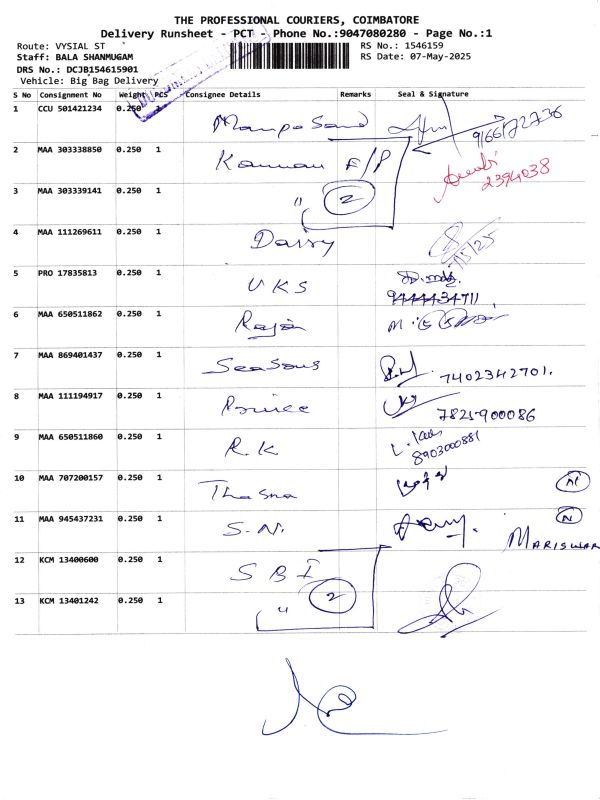 THE PROFESSIONAL COURIERS, COIMBATORE
Delivery Runsheet - PCT - Phone No.:9047080280 - Page No.:1
Route: VYSIAL ST RS No.: 1546159
Staff: BALA SHANMUGAM RS Date: 07-May-2025
DRS No.: DCJB154615901
Vehicle: Big Bag Delivery
S No Consignment No Weight PCS Consignee Details Remarks Seal & Signature
1 CCU 501421234 0.250 1 9166172736
2 MAA 303338850 0.250 1 Kannan F/P 2394038
3 MAA 303339141 0.250 1 " 2
4 MAA 111269611 0.250 1 Dairy 7/5/25
5 PRO 17835813 0.250 1 UKS 9444434711
6 MAA 650511862 0.250 1 Rajan
7 MAA 869401437 0.250 1 Seasons 7402342701.
8 MAA 111194917 0.250 1 Prince 7825900086
9 MAA 650511860 0.250 1 R.K 8903000881
10 MAA 707200157 0.250 1 Thasna
11 MAA 945437231 0.250 1 S.N. N
MARISWAR
12 KCM 13400600 0.250 1 SBI
13 KCM 13401242 0.250 1 " 2